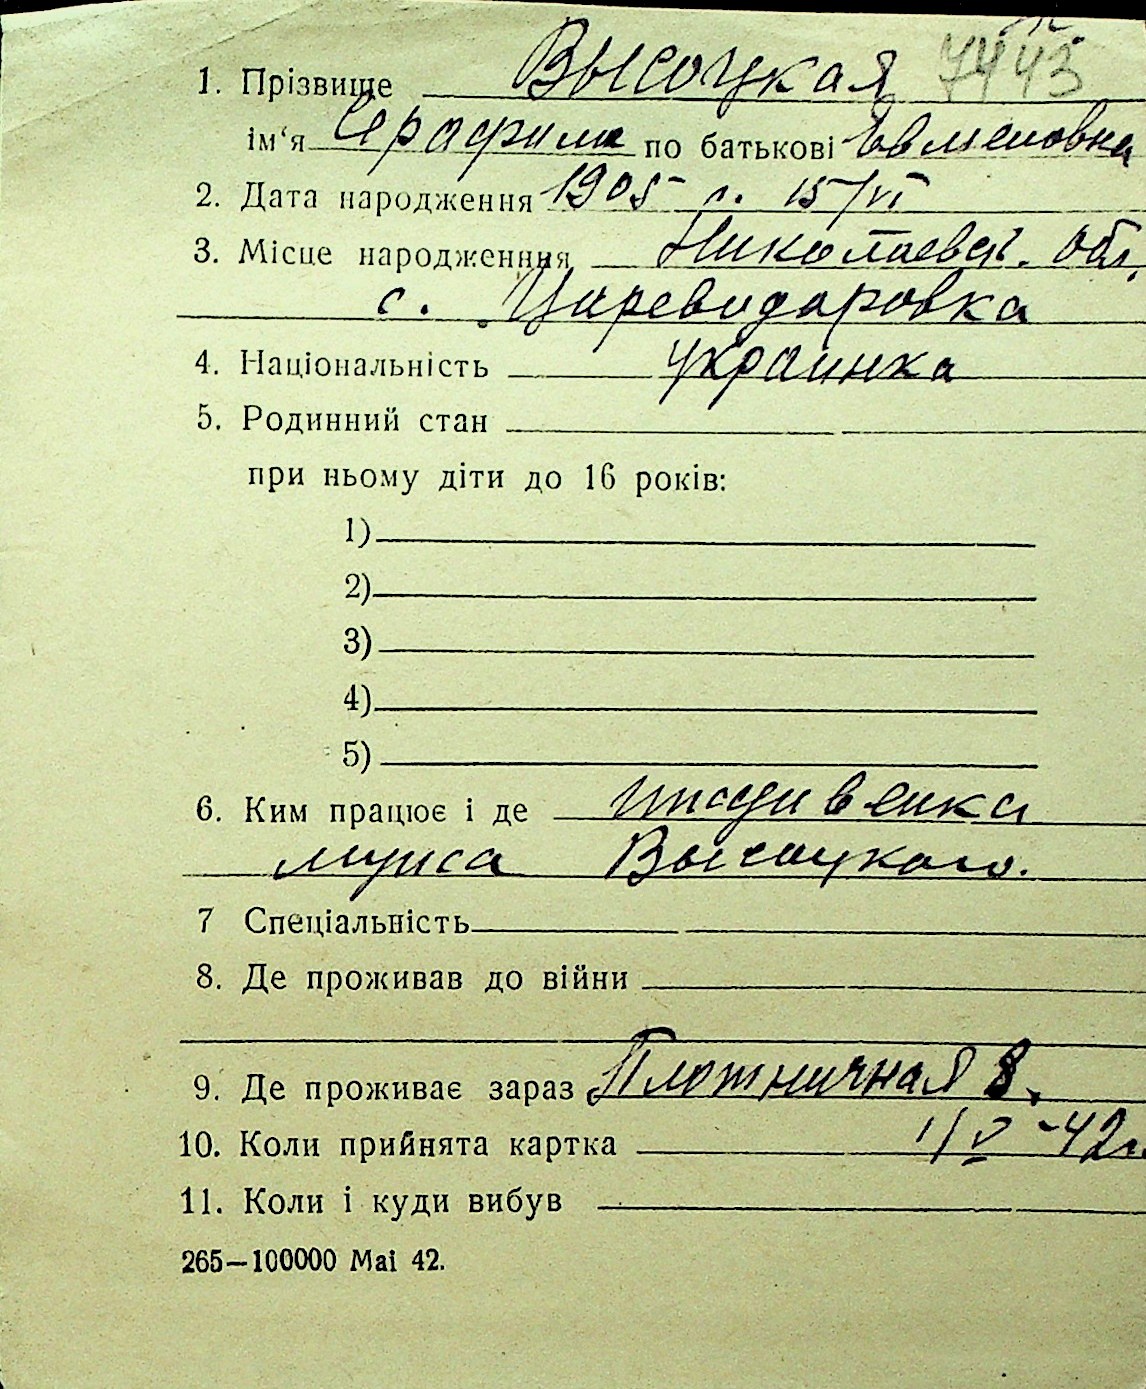 1. Прізвище Высоцкая 7443
ім‘я Серафима по батькові Евменовна
2. Дата народження 1905 г. 15/VI
3. Місце народженння Николаевск. обл.
с. Цареводаровка
4. Національність украинка
5. Родинний стан
при ньому діти до 16 років:
1)
2)
3)
4)
5)
6. Ким працює і де иждивенка
мужа Высоцкого.
7 Спеціальність
8. Де проживав до війни
9. Де проживає зараз Плотничная 8.
10. Коли прийнята картка 1/V-42г.
11. Коли і куди вибув
265—100000 Mai 42.